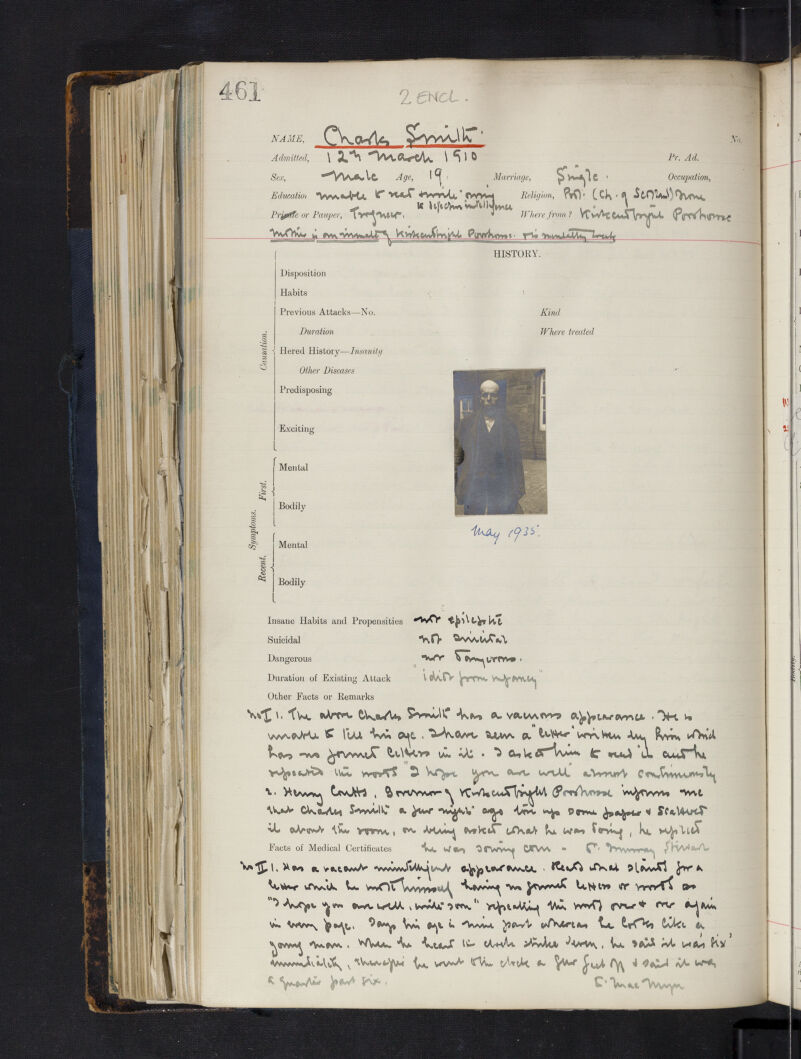 461
2 ENCL.
NAME, Charles Smith
No.
Admitted, 12th March 1910
Pr. Ad.
Sex, Male Age, 19 Marriage, Single. Occupation,
Education unable to read & write owing Religion, Prot. (Ch. of Scotland) none
to defective intelligence
Private or Pauper, Where from? Kirkcudbright Poorhouse
Mother is an inmate of Kirkcudbright Poorhouse & is mentally weak
HISTORY.
Causation.
Disposition
Habits
Previous Attacks—No. Kind
Duration Where treated
Hered History—Insanity
Other Diseases
Predisposing
Exciting
Symptoms.
First.
Mental
Bodily
May 1935.
Recent.
Mental
Bodily
Insane Habits and Propensities not epileptic
Suicidal not suicidal
Dangerous not dangerous.
Duration of Existing Attack "idiot from infancy"
Other Facts or Remarks
No I 1. The above Charles Smith has a vacuous appearance. He is
unable to tell his age. I have seen a "letter" written by him which
has no formed letters in it. I asked him to read it and he
repeated the words "I hope you are well" almost continuously
2. Henry Coutts, Governor of Kirkcudbright Poorhouse informs me
that Charles Smith a few nights ago tore up some paper & scattered
it about the room, on being asked what he was doing, he replied
Facts of Medical Certificates he was sowing corn - Murray
No II 1. Has a vacant unintelligent appearance. Reads what stands for a
letter which he wrote himself having no formed letters or words as
"I hope you are well, write soon" repeating the words over & over again
in every page. Says his age is nine past whereas he looks like a
young man. When he heard the clock strike seven, he said it was 'six'
immediately, thereafter he went to the clock a few feet off & said it was
a quarter past six.